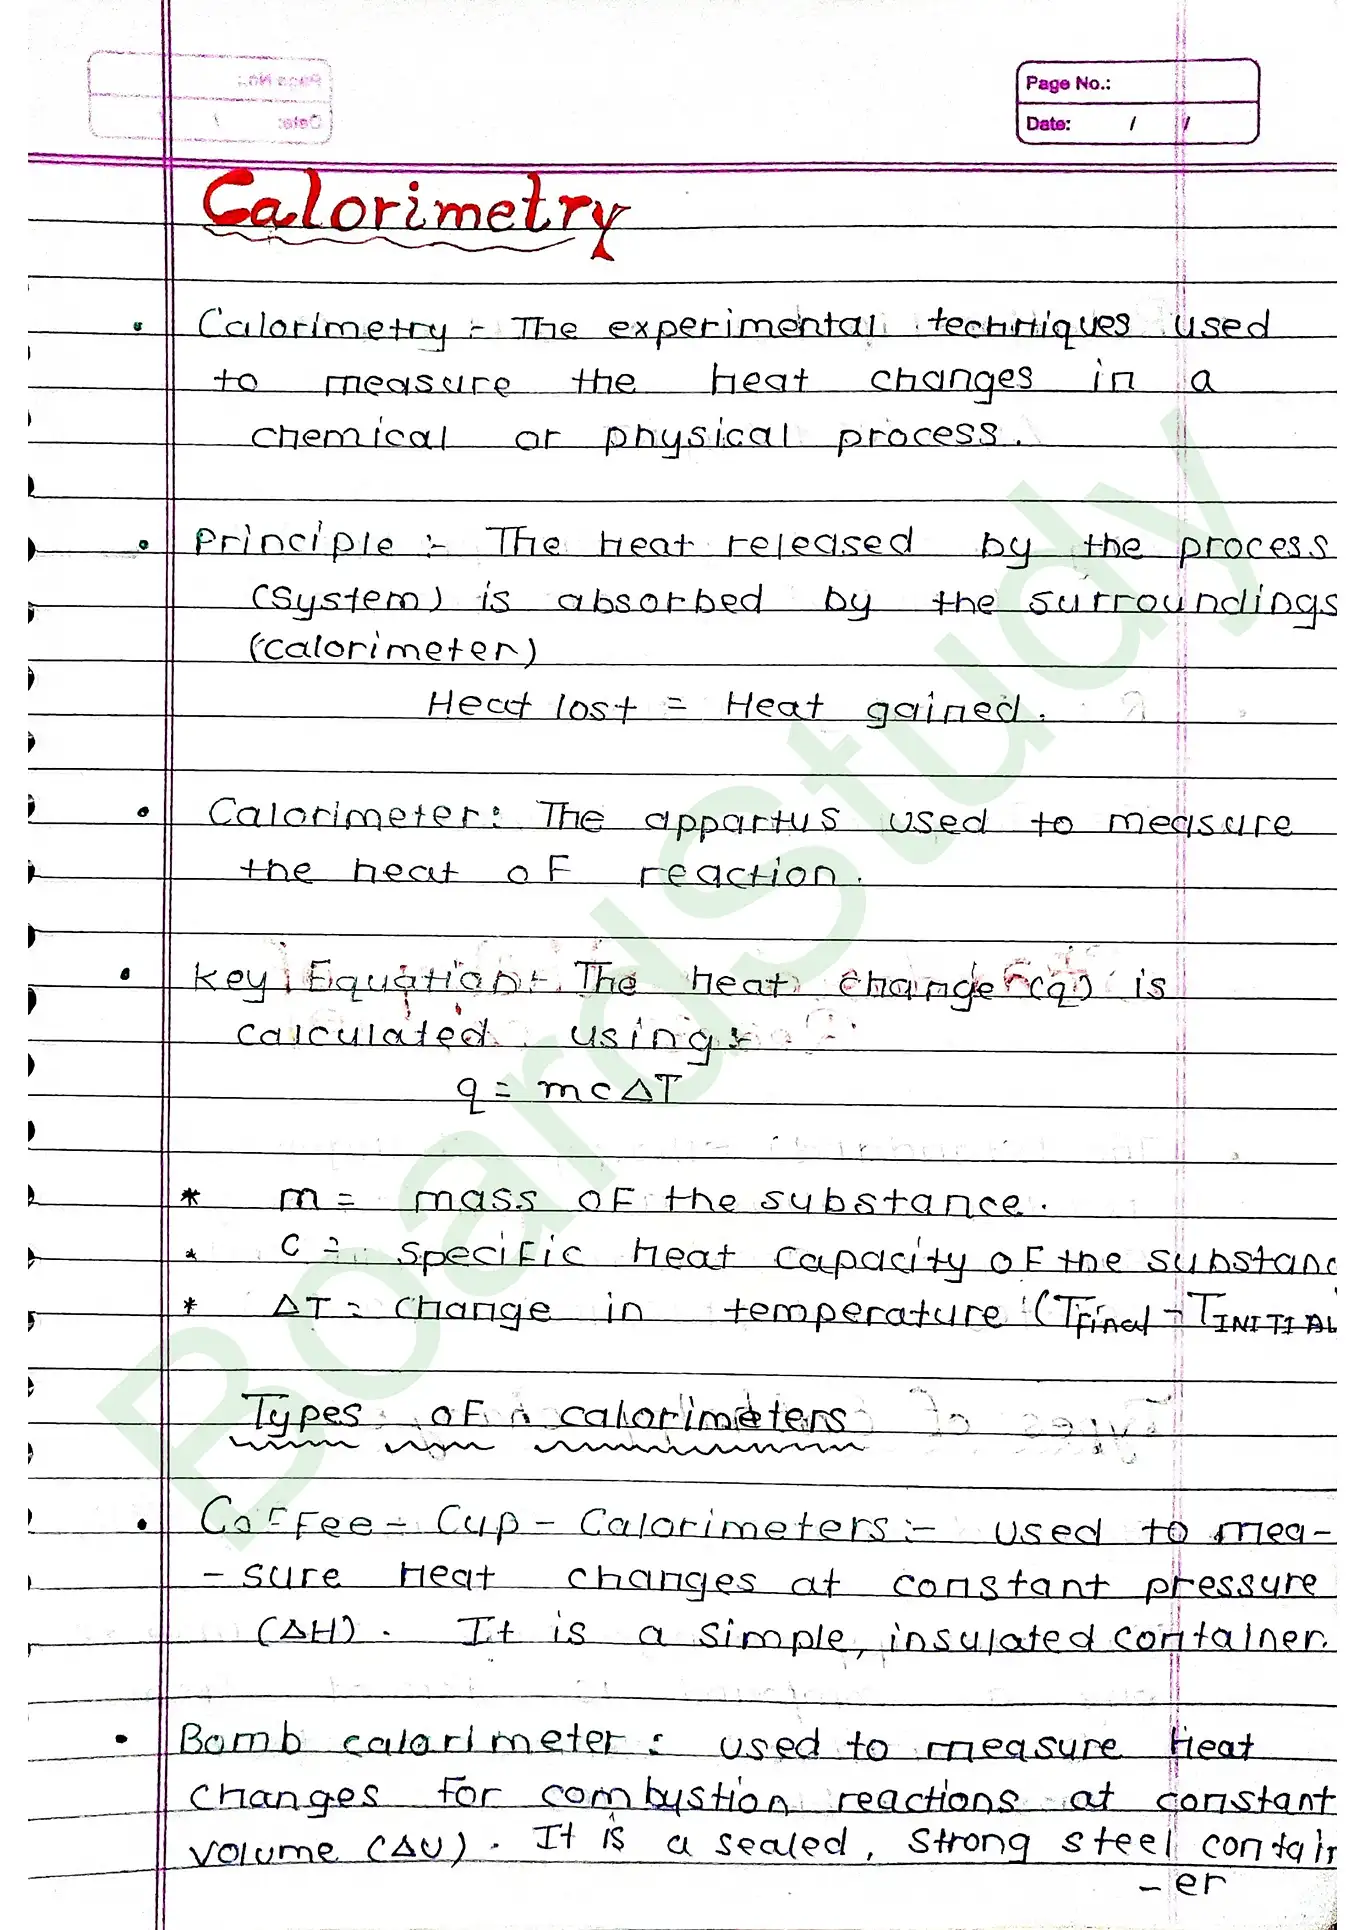 Page No.:
Date: / /
Calorimetry
• Calorimetry :- The experimental techniques used
to measure the heat changes in a
chemical or physical process.
• Principle :- The heat released by the process
(System) is absorbed by the surroundings
(calorimeter)
Heat lost = Heat gained.
• Calorimeter: The appartus used to measure
the heat of reaction.
• Key Equation:- The heat change (q) is
calculated using:-
q = mcΔT
* m = mass of the substance.
* c = specific heat capacity of the substanc
* ΔT = change in temperature (Tfinal - TINITIAL
Types of calorimeters
• Coffee - Cup - Calorimeters :- used to mea-
- sure heat changes at constant pressure
(ΔH). It is a simple, insulated container.
• Bomb calorimeter : used to measure heat
changes for combustion reactions at constant
volume (ΔU). It is a sealed, strong steel contain
- er
BoardStudy